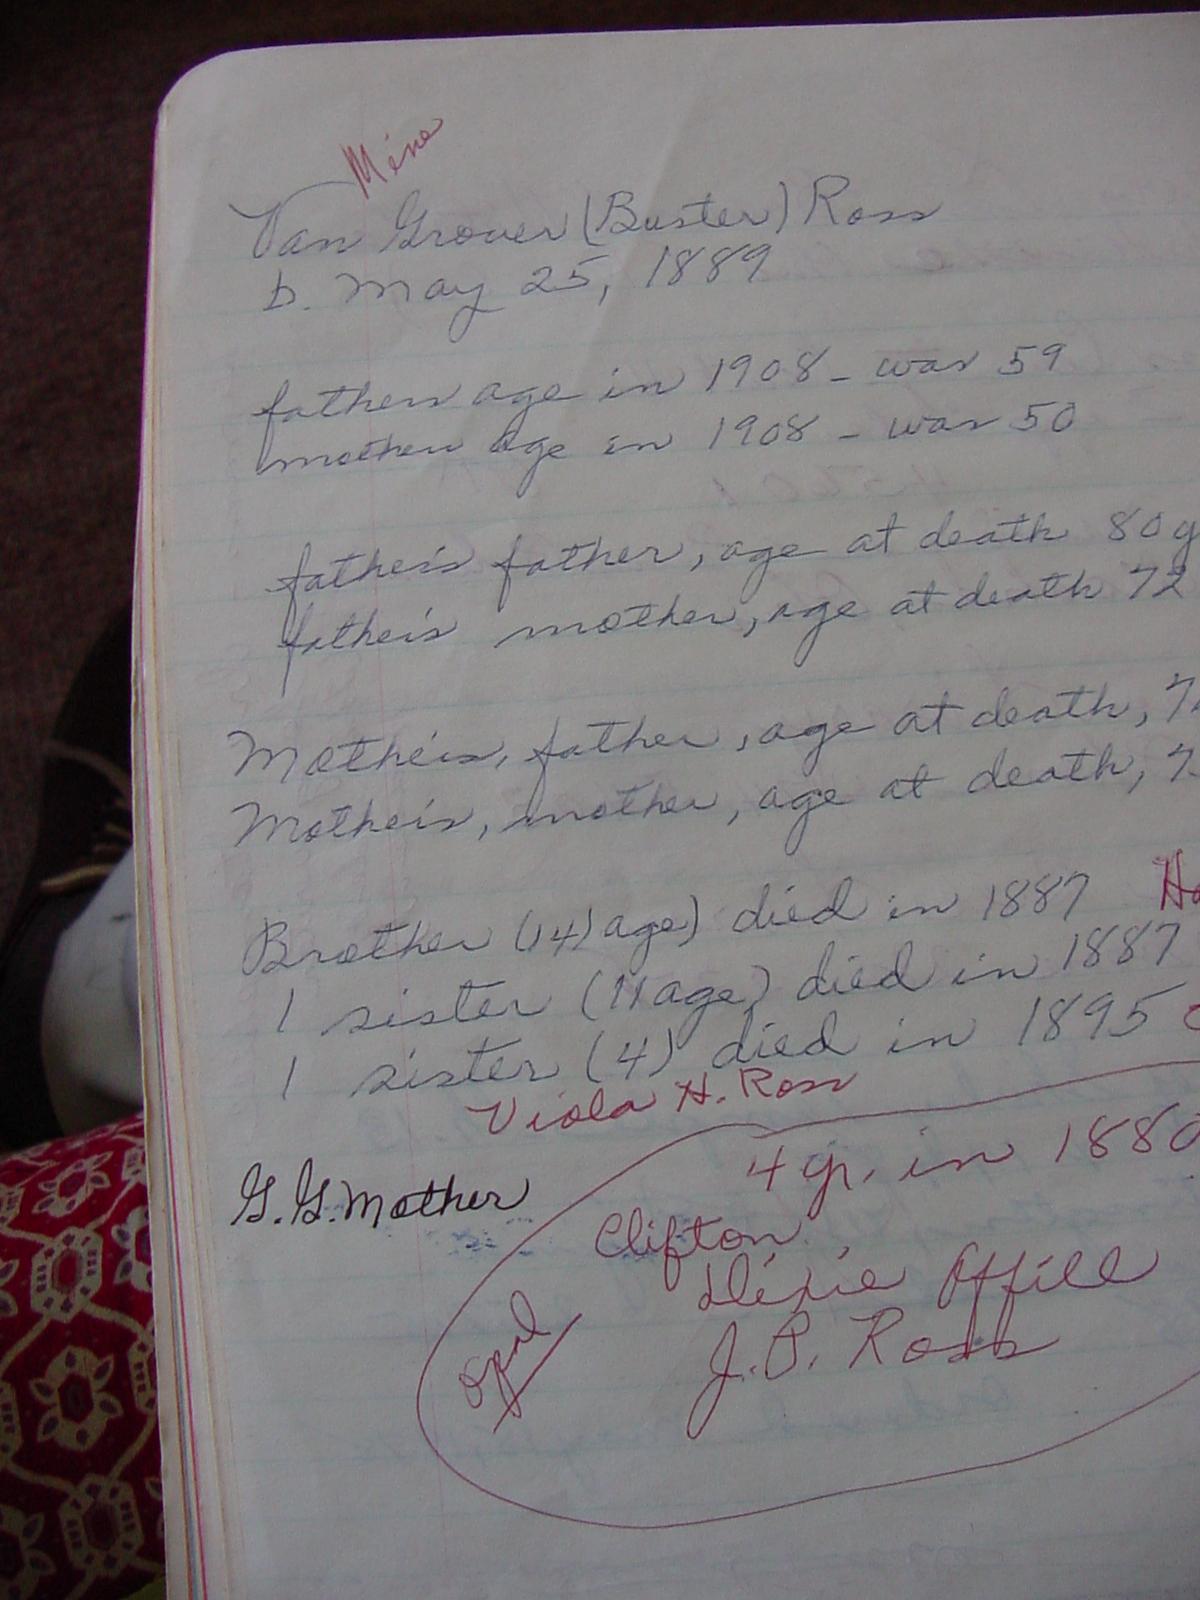 Mine
Van Grover (Buster) Ross
b. May 25, 1889
fathers age in 1908 - was 59
mother age in 1908 - was 50
father's father, age at death 80 y
father's mother, age at death 72
Mother's, father, age at death, 7
Mother's, mother, age at death, 7
Brother (14) age) died in 1887
1 sister (11 age) died in 1887
1 sister (4) died in 1895
Viola H. Ross
4 yr. in 188
G. G. Mother
Clifton
Dixie Offill
J. P. Ross
Opal